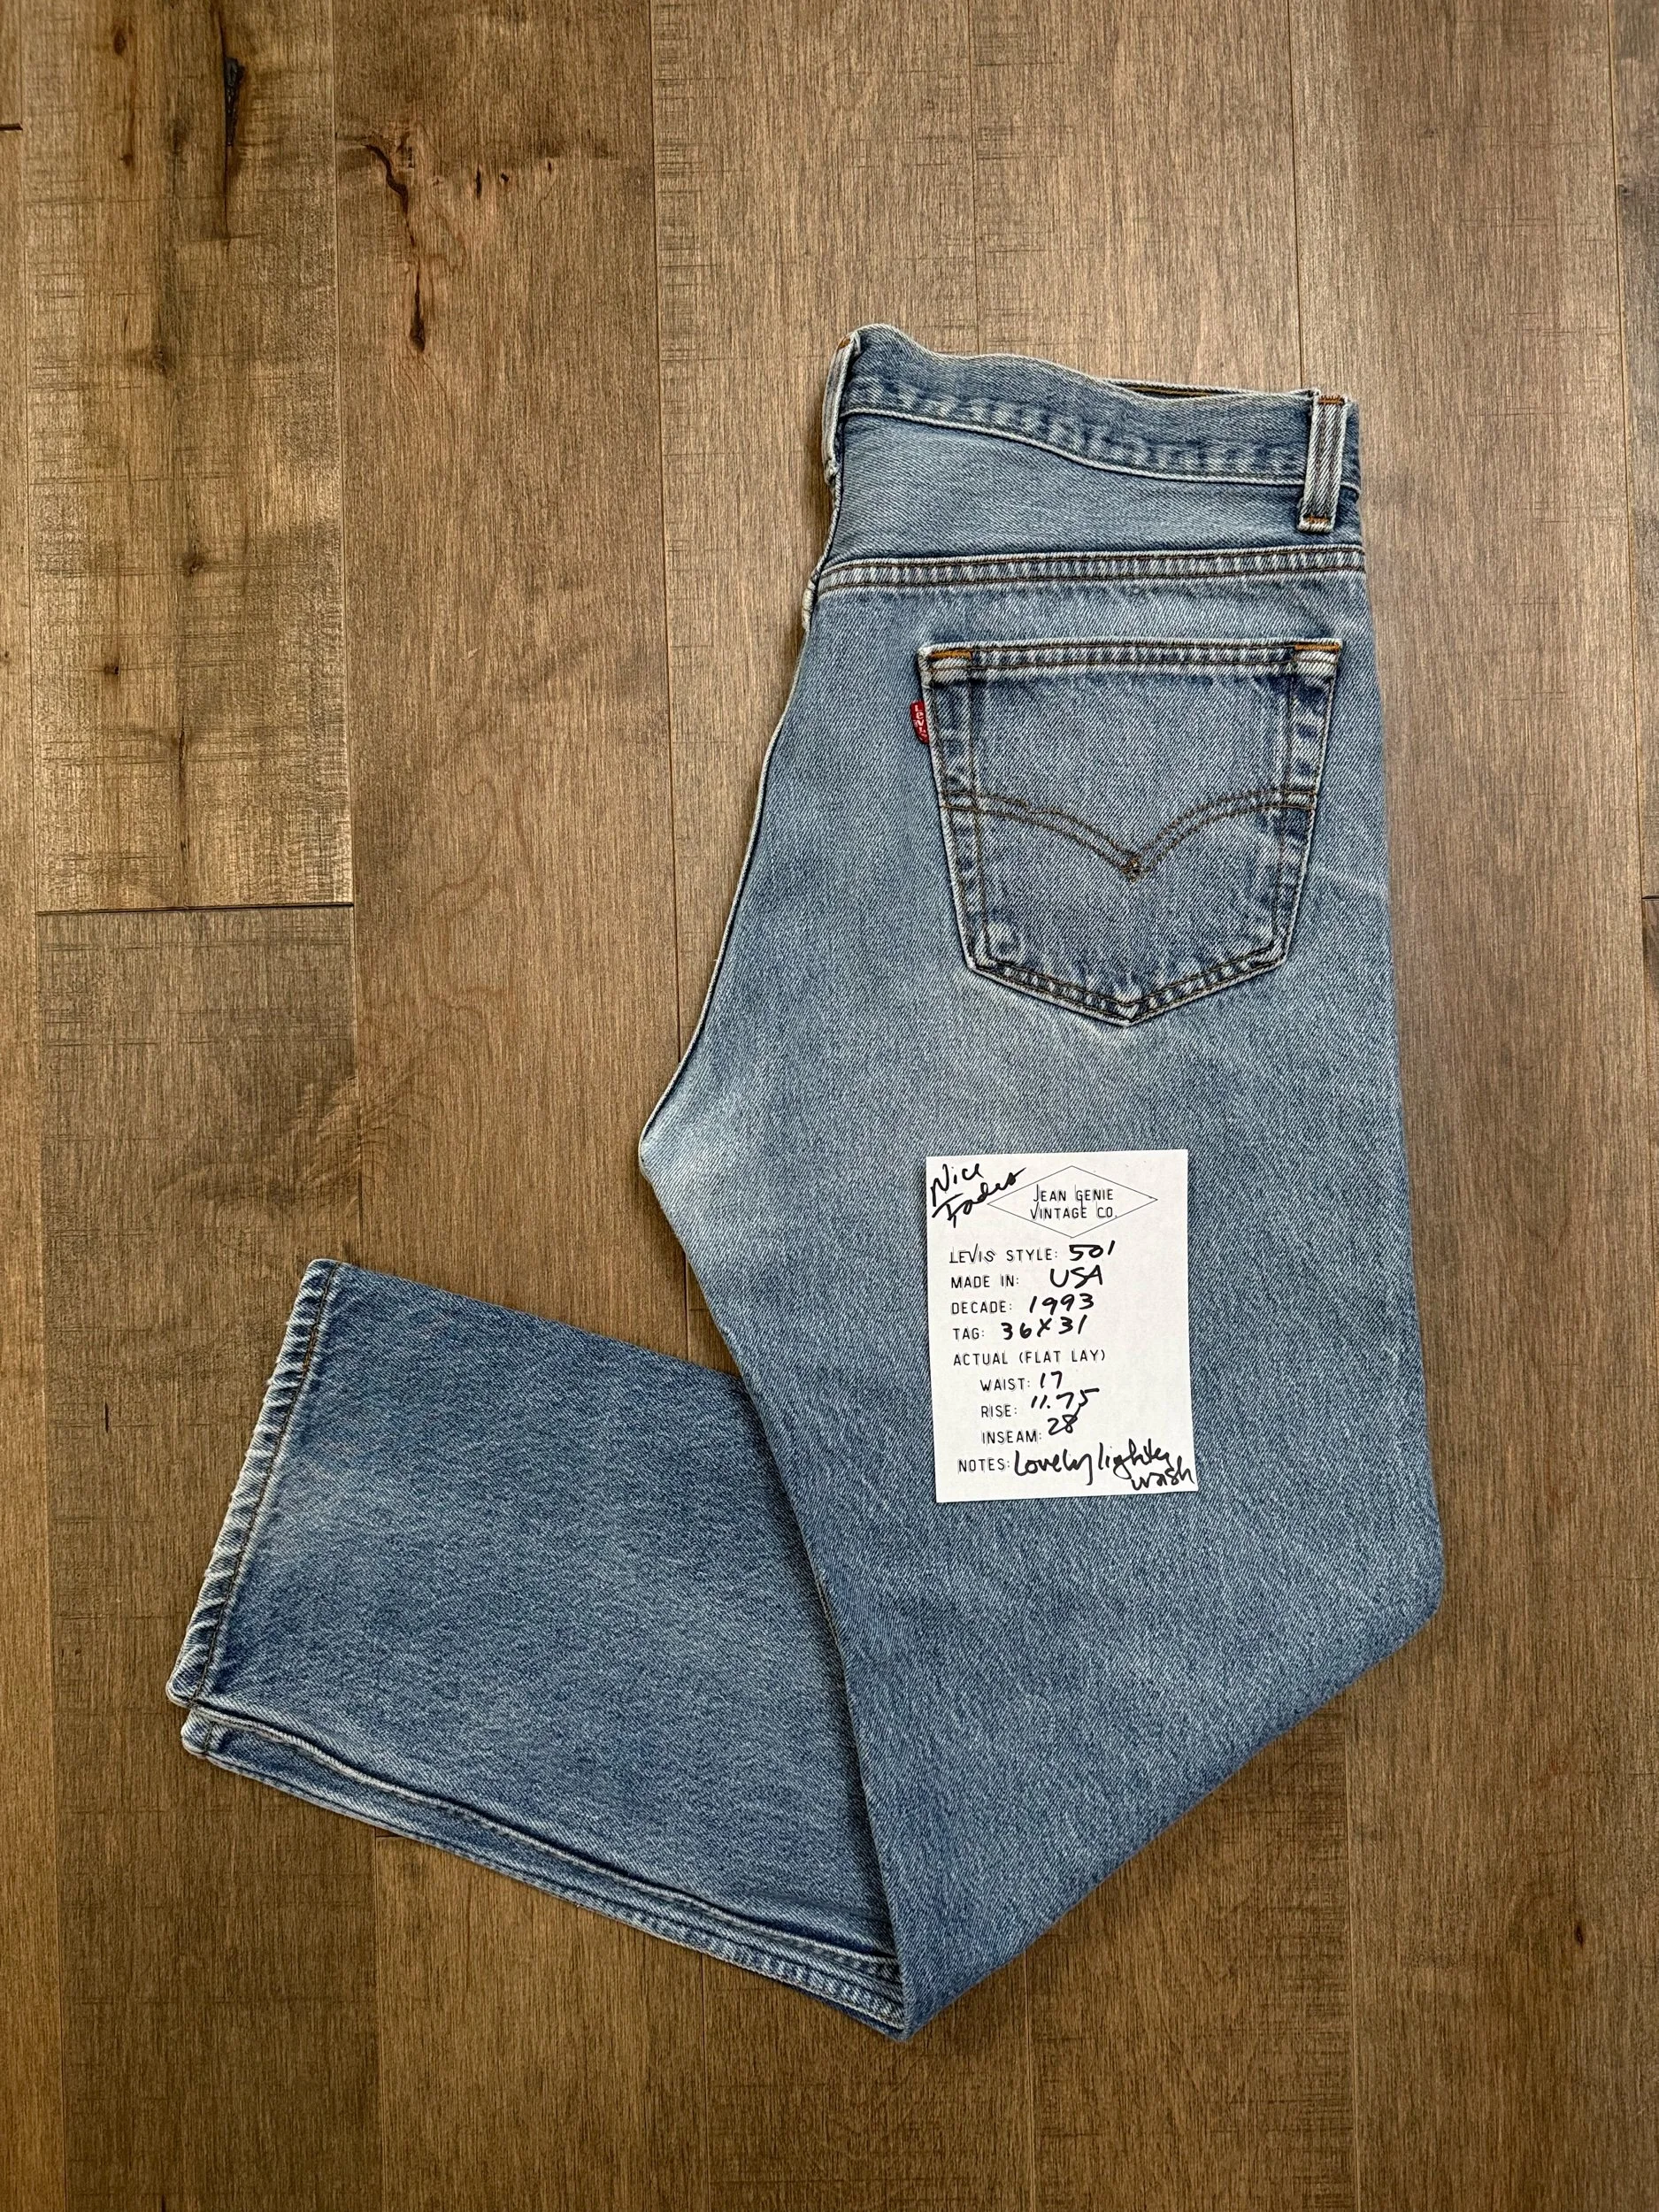 LEVI'S
Nice
Fades
JEAN GENIE
VINTAGE CO.
LEVIS STYLE: 501
MADE IN: USA
DECADE: 1993
TAG: 36X31
ACTUAL (FLAT LAY)
WAIST: 17
RISE: 11.75
INSEAM: 28
NOTES: Lovely lighter
wash